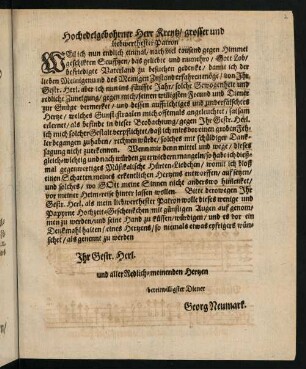 Hochedelgebohrner Herr Krentz/ grosser und
liebwerthester Patron
WEil ich nun endlich einmal/ nach viel tausend gegen Himmel
geschikkten Seuftzen/ das geliebte und nunmehro/ Gott Lob/
befriedigte Vaterland zu besuchen gedenke/ damit ich der
lieben Meinigen und des Meinigen Zustand erfahren möge/ von Ihr.
Gestr. Herl. aber ich nun ins fünffte Jahr/ solche Gewogenheit und
redliche Zuneigung/ gegen mich/ seinen willigsten Freund und Diener
zur Gnüge vermerket/ und dessen auffrichtiges und unverfälschetes
Hertz/ welches Gunststraalen mich offtmals angeleuchtet/ satsam
erlernet/ als befinde in dieser Beobachtung/ gegen Ihr Gestr. Herl.
ich mich solcher Gestalt verpflichtet/ daß ich mir vor einen groben Feh-
ler begangen zu haben/ rechnen würde/ solches mit schuldiger Dank-
sagung nicht zuerkennen. Wenn mir denn mittel und wege/ dieses
gleichwichtig und nach würden zu erwiedern mangeln/ so habe ich dieß-
mal gegenwertiges Musikalische Hürten-Liedchen/ womit ich bloß
einen Schatten meines erkentlichen Hertzens entworffen/ auffsetzen/
und solches/ wo GOtt meine Sinnen nicht anderswo hinlenket/
vor meiner Heimreise hinter lassen wollen. Bitte deswegen Ihr
Gestr. Herl. als mein liebwerthester Patron wolle dieses wenige und
Papyrne Hochzeit-Geschenkchen mit günstigen Augen auf genom-
men zu werden/ und seine Hand zu küssen/ würdigen/ und es vor ein
Denkmahl halten/ eines Hertzens/ so niemals etwas eyfriges wün-
schet/ als genennt zu werden
Ihr Gestr. Herl.
und aller Redlich-meinenden Hertzen
bereitwilligster Diener
Georg Neumark.